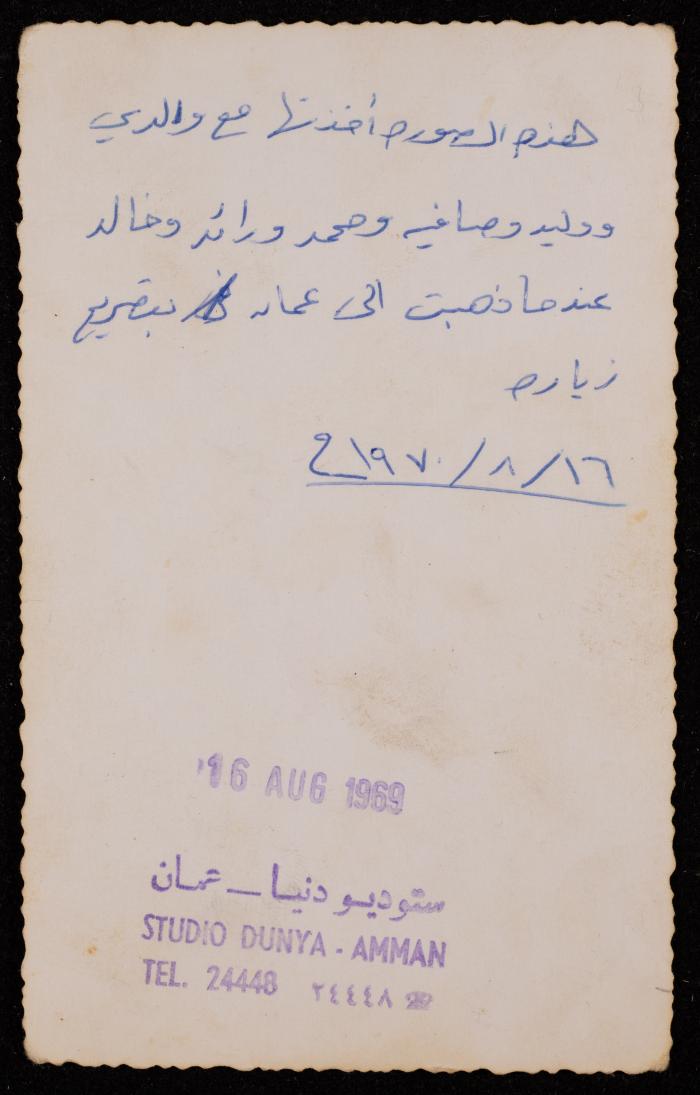 هذه الصوره أخذتها مع والدي
ووليد وصافيه ومحمد ورائد وخالد
عندما ذهبت الى عمان بتصريح
زياره
١٦/٨/١٩٧٠م
16 AUG 1969
ستوديو دنيا - عمان
STUDIO DUNYA - AMMAN
TEL. 24448 ٢٤٤٤٨ ☎